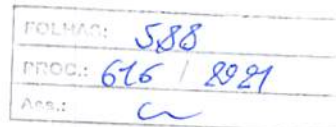 FOLHAS: 588
PROC.: 616 / 2021
Ass.: